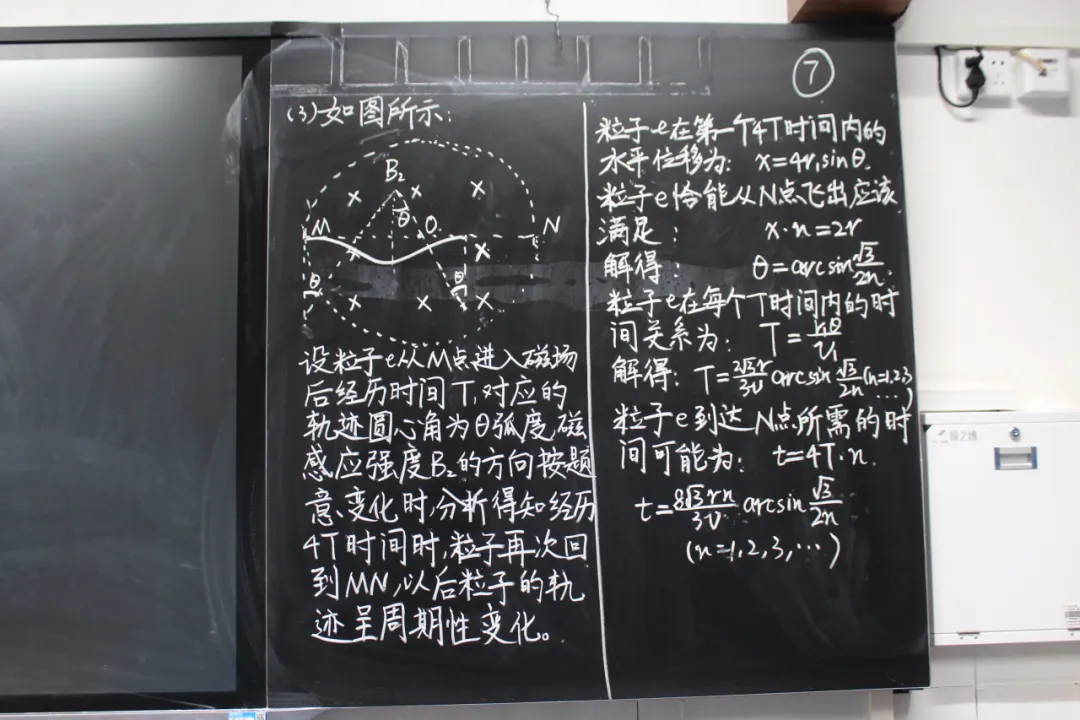 ⑦
(3)如图所示:
B₂
θ
M
O
N
θ
θ
设粒子e从M点进入磁场
后经历时间T,对应的
轨迹圆心角为θ弧度,磁
感应强度B₂的方向按题
意变化时,分析得知经历
4T时间时,粒子再次回
到MN,以后粒子的轨
迹呈周期性变化。
粒子e在第一个4T时间内的
水平位移为: x=4r₁sinθ.
粒子e恰能从N点飞出应该
满足: x·n=2r
解得: θ=arcsin√3/2n.
粒子e在每个T时间内的时
间关系为: T=r₁θ/v₁
解得: T=2√3r/3v arcsin √3/2n (n=1,2,3
…)
粒子e到达N点所需的时
间可能为: t=4T·n.
t=8√3rn/3v arcsin √3/2n
(n=1,2,3,…)